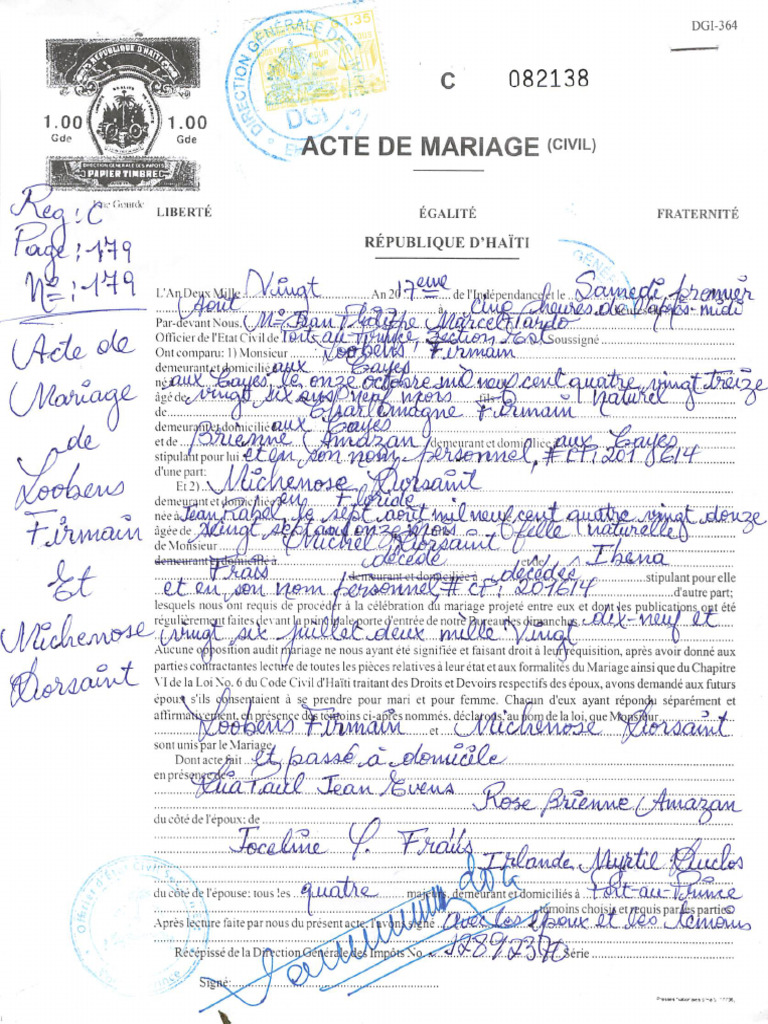 DGI-364
RÉPUBLIQUE D'HAÏTI
1.00 Gde
1.00 Gde
DIRECTION GÉNÉRALE DES IMPÔTS
PAPIER TIMBRE
Une Gourde
DIRECTION GÉNÉRALE DES
1.35
DGI
C 082138
ACTE DE MARIAGE (CIVIL)
LIBERTÉ ÉGALITÉ FRATERNITÉ
RÉPUBLIQUE D'HAÏTI
Reg : C
Page : 179
No = : 179
Acte de
Mariage
de
Loobens
Firmain
Et
Michenose
Dorsaint
L'An Deux Mille Vingt An 2017eme de l'Indépendance et le Samedi premier
Août à cinq heures de l'après-midi
Par-devant Nous, Me Jean Philippe Marcel
Officier de l'Etat Civil de Port-au-Prince Section Est Soussigné
Ont comparu: 1) Monsieur Loobens Firmain
demeurant et domicilié aux Cayes
né aux Cayes, le onze octobre mil neuf cent quatre vingt treize
âgé de vingt six ans neuf mois fils naturel
de Charlemagne Firmain
demeurant et domicilié aux Cayes
et de Brienne Amazan demeurant et domiciliée aux Cayes
stipulant pour lui et en son nom personnel, # CT: 2018614
d'une part:
Et 2) Michenose Dorsaint
demeurant et domiciliée en Floride
née à Jean Rabel le sept août mil neuf cent quatre vingt douze
âgée de Vingt sept ans onze mois fille naturelle
de Monsieur Michel Dorsaint
demeurant et domicilié à décédé et de Ibena
Frais demeurant et domiciliée à décédés stipulant pour elle
et en son nom personnel # CT: 201614 d'autre part;
lesquels nous ont requis de procéder à la célébration du mariage projeté entre eux et dont les publications ont été
régulièrement faites devant la principale porte d'entrée de notre Bureau les dimanches dix-neuf et
vingt six juillet deux mille vingt
Aucune opposition audit mariage ne nous ayant été signifiée et faisant droit à leur réquisition, après avoir donné aux
parties contractantes lecture de toutes les pièces relatives à leur état et aux formalités du Mariage ainsi que du Chapitre
VI de la Loi No. 6 du Code Civil d'Haïti traitant des Droits et Devoirs respectifs des époux, avons demandé aux futurs
époux s'ils consentaient à se prendre pour mari et pour femme. Chacun d'eux ayant répondu séparément et
affirmativement, en présence des témoins ci-après nommés, déclarons, au nom de la loi, que Monsieur
Loobens Firmain et Michenose Dorsaint
sont unis par le Mariage
Dont acte fait et passé à domicile
en présence de Jean Evens
Rose Brienne Amazan
du côté de l'époux; de
Joceline Frais
Irlande Myrtil Duclos
du côté de l'épouse; tous les quatre majeurs, demeurant et domiciliés à Port-au-Prince
témoins choisis et requis par les parties
Après lecture faite par nous du présent acte, l'avons signé avec les époux et les témoins
Récépissé de la Direction Générale des Impôts No. Série
Signé: